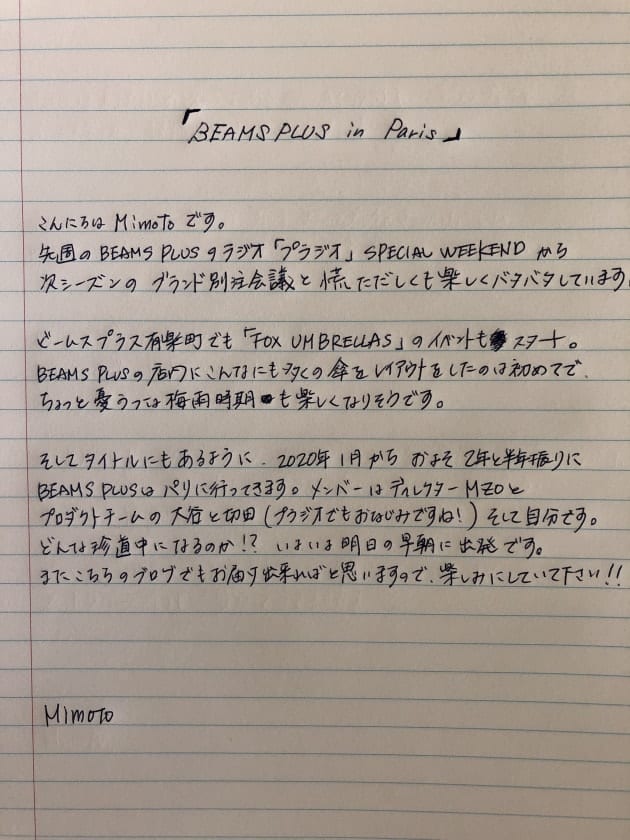 「BEAMS PLUS in Paris」
こんにちは Mimoto です。
先週の BEAMS PLUS のラジオ「プラジオ」SPECIAL WEEKEND から
次シーズンの ブランド別注会議と慌ただしくも楽しくバタバタしています
ビームスプラス有楽町でも「FOX UMBRELLAS」のイベントも スタート。
BEAMS PLUSの店内にこんなにも多くの傘をレイアウトをしたのは初めてで、
ちょっと憂うつな梅雨時期も楽しくなりそうです。
そしてタイトルにもあるように、2020年1月から およそ2年と半年振りに
BEAMS PLUSは パリに行ってきます。メンバーは ディレクターMZOと
プロダクトチームの 大谷と切田(プラジオでもおなじみですね!) そして自分です。
どんな珍道中になるのか!? いよいよ明日の早朝に出発です。
またこちらのブログでもお届け出来ればと思いますので、楽しみにしていて下さい!!
Mimoto